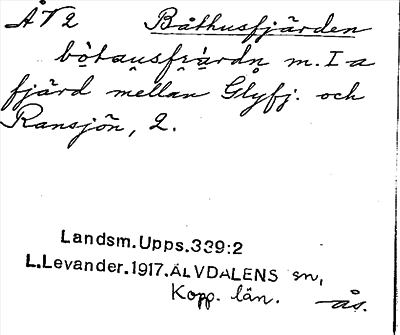 ÅV2 Båthusfjärden
bòtausfràrdn m. I a
fjärd mellan Glyfj. och
Ransjön, 2.
Landsm.Upps.339:2
L.Levander.1917.ÄLVDALENS sn,
Kopp. län. -ås.